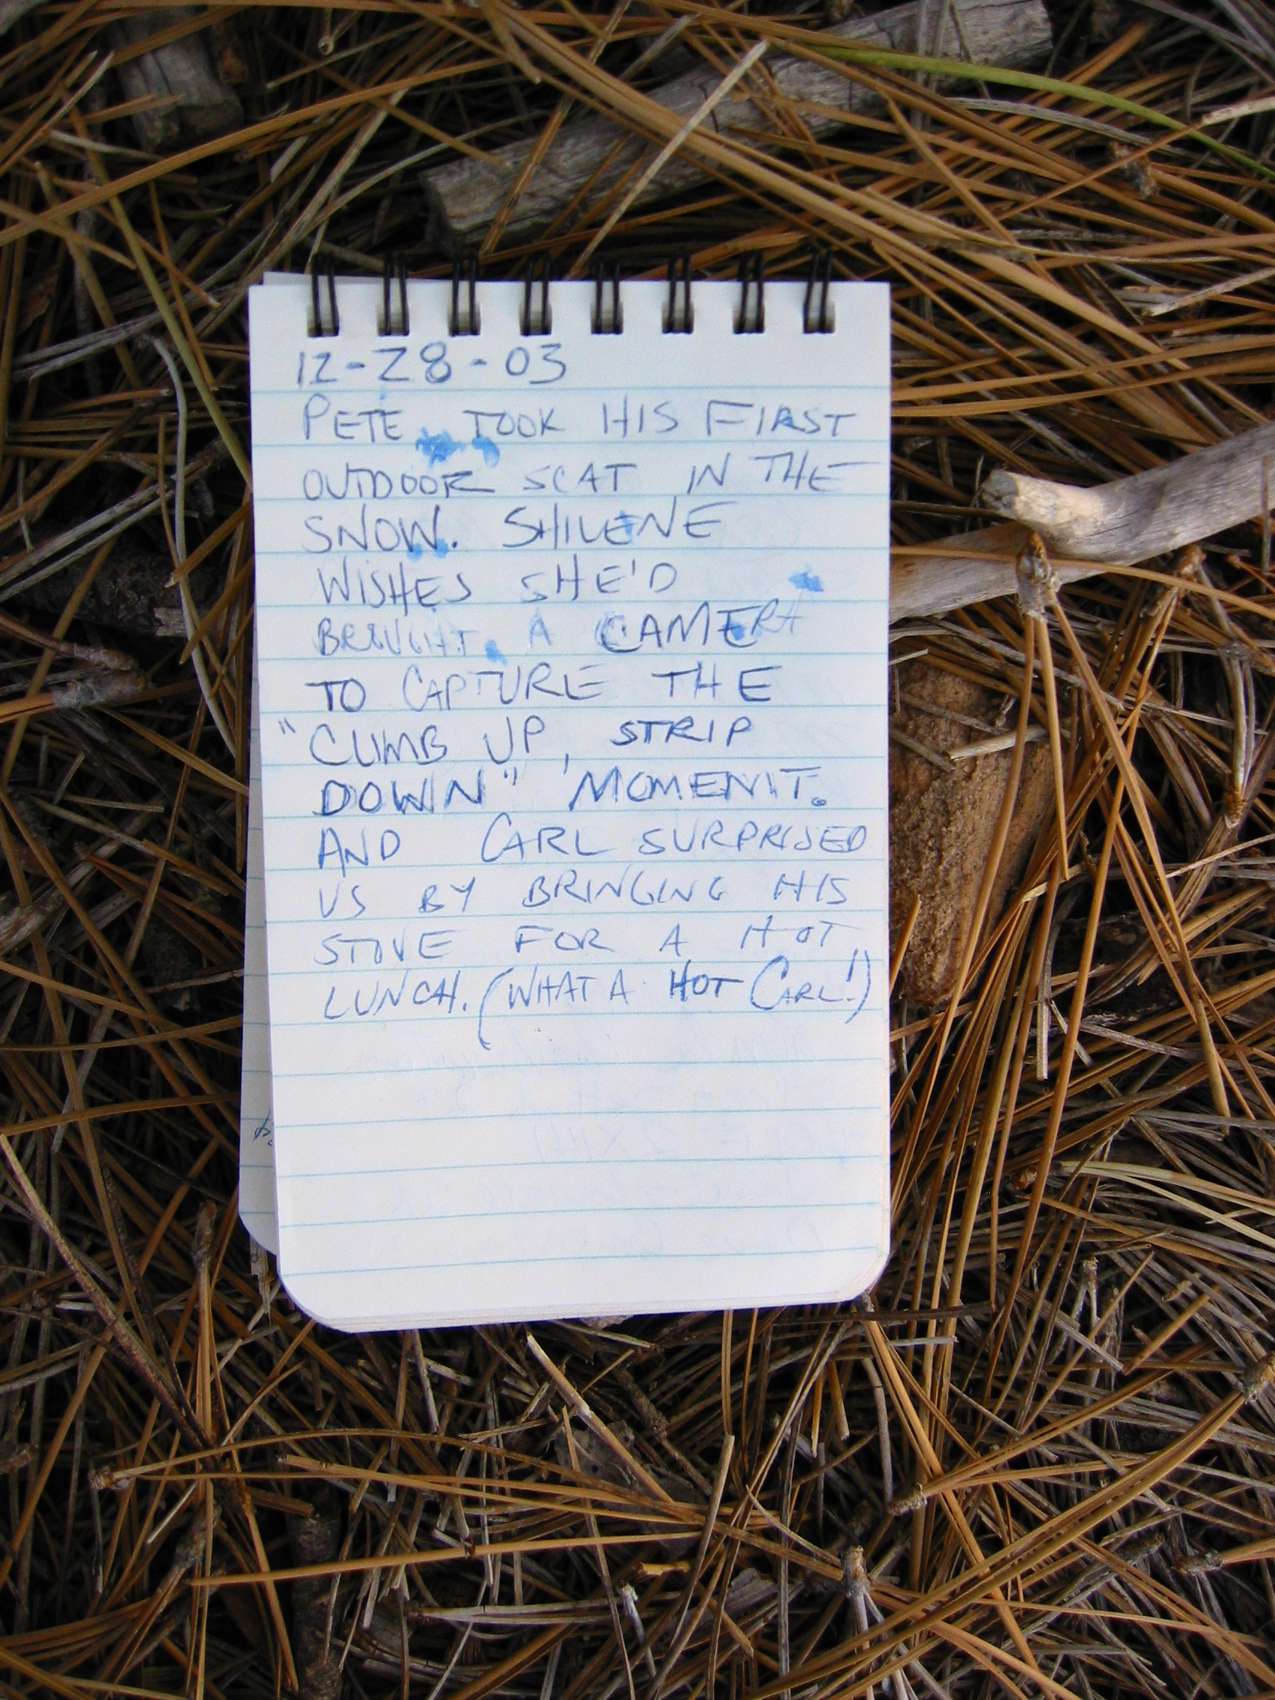 12-28-03
PETE TOOK HIS FIRST
OUTDOOR SCAT IN THE
SNOW. SHILENE
WISHES SHE'D
BROUGHT A CAMERA
TO CAPTURE THE
"CLIMB UP, STRIP
DOWN" MOMENT.
AND CARL SURPRISED
US BY BRINGING HIS
STOVE FOR A HOT
LUNCH. (WHAT A HOT CARL!)